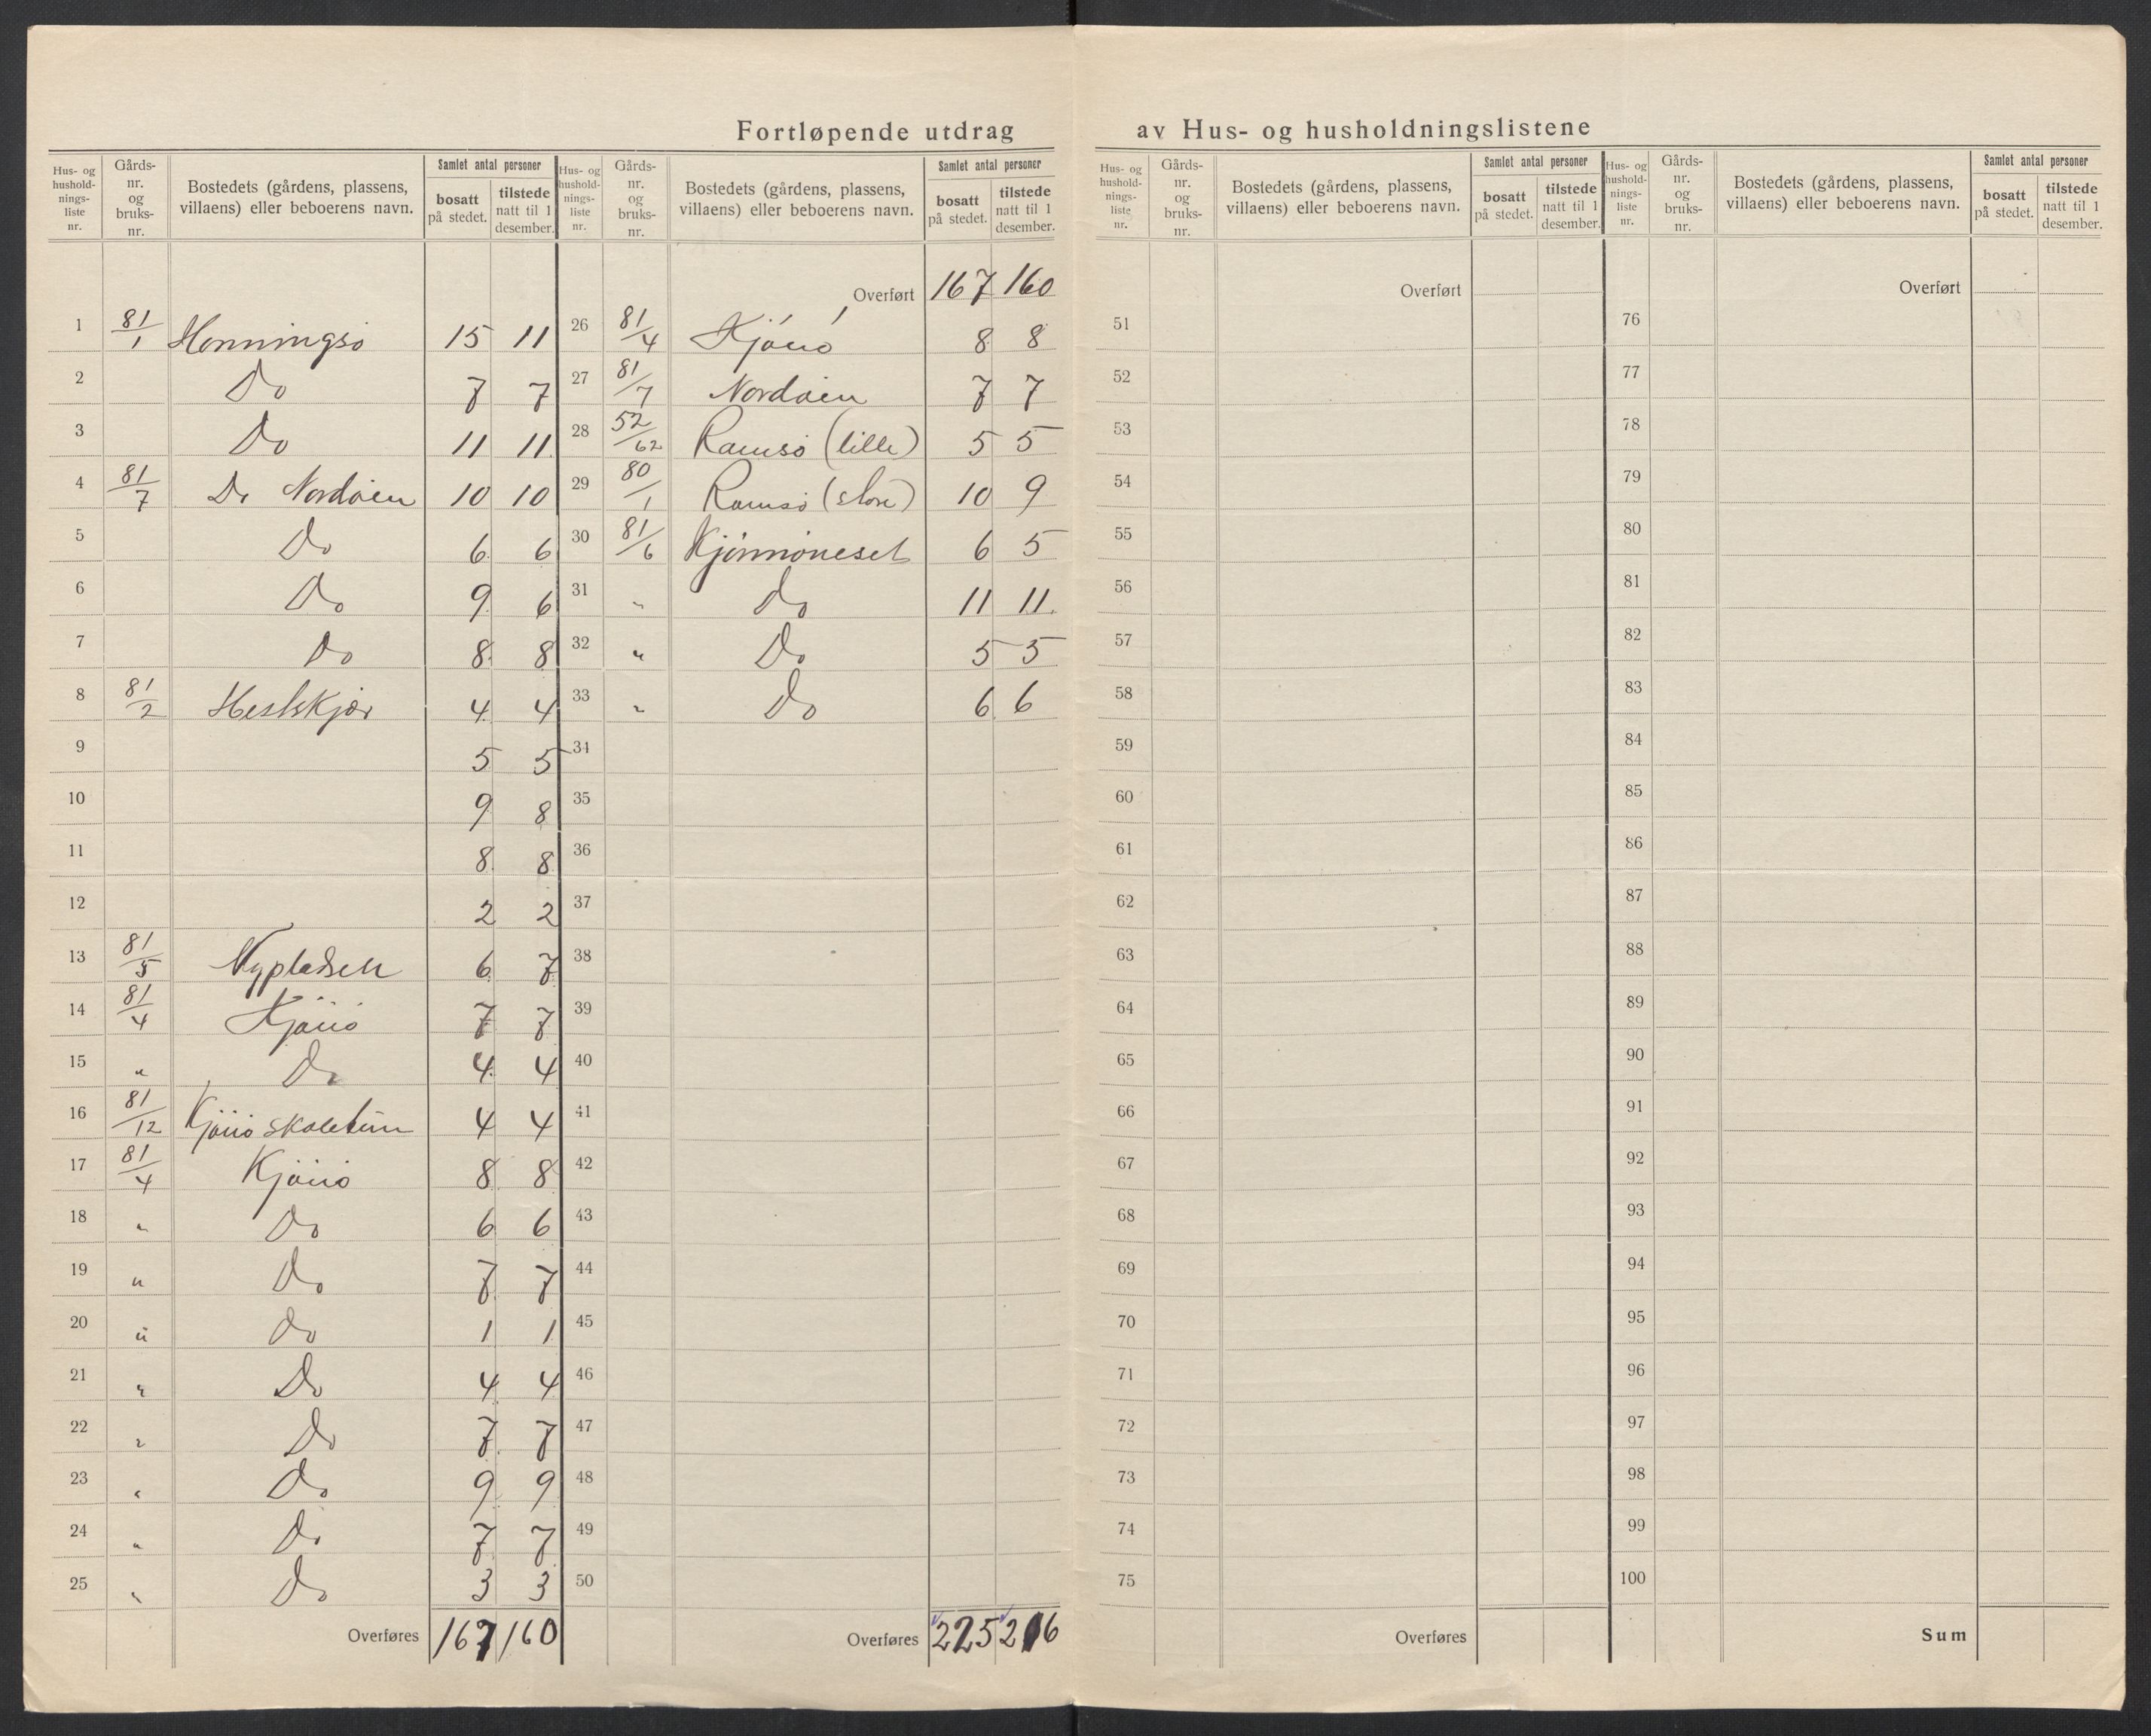 Fortløpende utdrag av Hus- og husholdningslistene
Hus- og hushold-nings-liste nr. | Gårds-nr. og bruks-nr. | Bostedets (gårdens, plassens, villaens) eller beboerens navn. | Samlet antal personer | bosatt på stedet. | tilstede natt til 1 desember.
1 81/1 Henningsö 15 11
2 Do 7 7
3 Do 11 11
4 81/7 Do Nordöien 10 10
5 Do 6 6
6 Do 9 6
7 Do 8 8
8 81/2 Hestskjær 4 4
9 5 5
10 9 8
11 8 8
12 2 2
13 81/5 Nypladsen 6 7
14 81/4 Kjönö 7 7
15 " Do 4 4
16 81/12 Kjönö skoletun 4 4
17 81/4 Kjönö 8 8
18 " Do 6 6
19 " Do 7 7
20 " Do 1 1
21 " Do 4 4
22 " Do 7 7
23 " Do 9 9
24 " Do 7 7
25 " Do 3 3
Overføres 167 160
Hus- og hushold-nings-liste nr. | Gårds-nr. og bruks-nr. | Bostedets (gårdens, plassens, villaens) eller beboerens navn. | Samlet antal personer | bosatt på stedet. | tilstede natt til 1 desember.
Overført 167 160
26 81/4 Kjönö 8 8
27 81/7 Nordöien 7 7
28 52/62 Ramsö (lille) 5 5
29 80/1 Ramsö (store) 10 9
30 81/6 Kjönnöneset 6 5
31 " Do 11 11
32 " Do 5 5
33 " Do 6 6
34
35
36
37
38
39
40
41
42
43
44
45
46
47
48
49
50
Overføres 225 216
Hus- og hushold-nings-liste nr. | Gårds-nr. og bruks-nr. | Bostedets (gårdens, plassens, villaens) eller beboerens navn. | Samlet antal personer | bosatt på stedet. | tilstede natt til 1 desember.
Overført
51
52
53
54
55
56
57
58
59
60
61
62
63
64
65
66
67
68
69
70
71
72
73
74
75
Overføres
Hus- og hushold-nings-liste nr. | Gårds-nr. og bruks-nr. | Bostedets (gårdens, plassens, villaens) eller beboerens navn. | Samlet antal personer | bosatt på stedet. | tilstede natt til 1 desember.
Overført
76
77
78
79
80
81
82
83
84
85
86
87
88
89
90
91
92
93
94
95
96
97
98
99
100
Sum